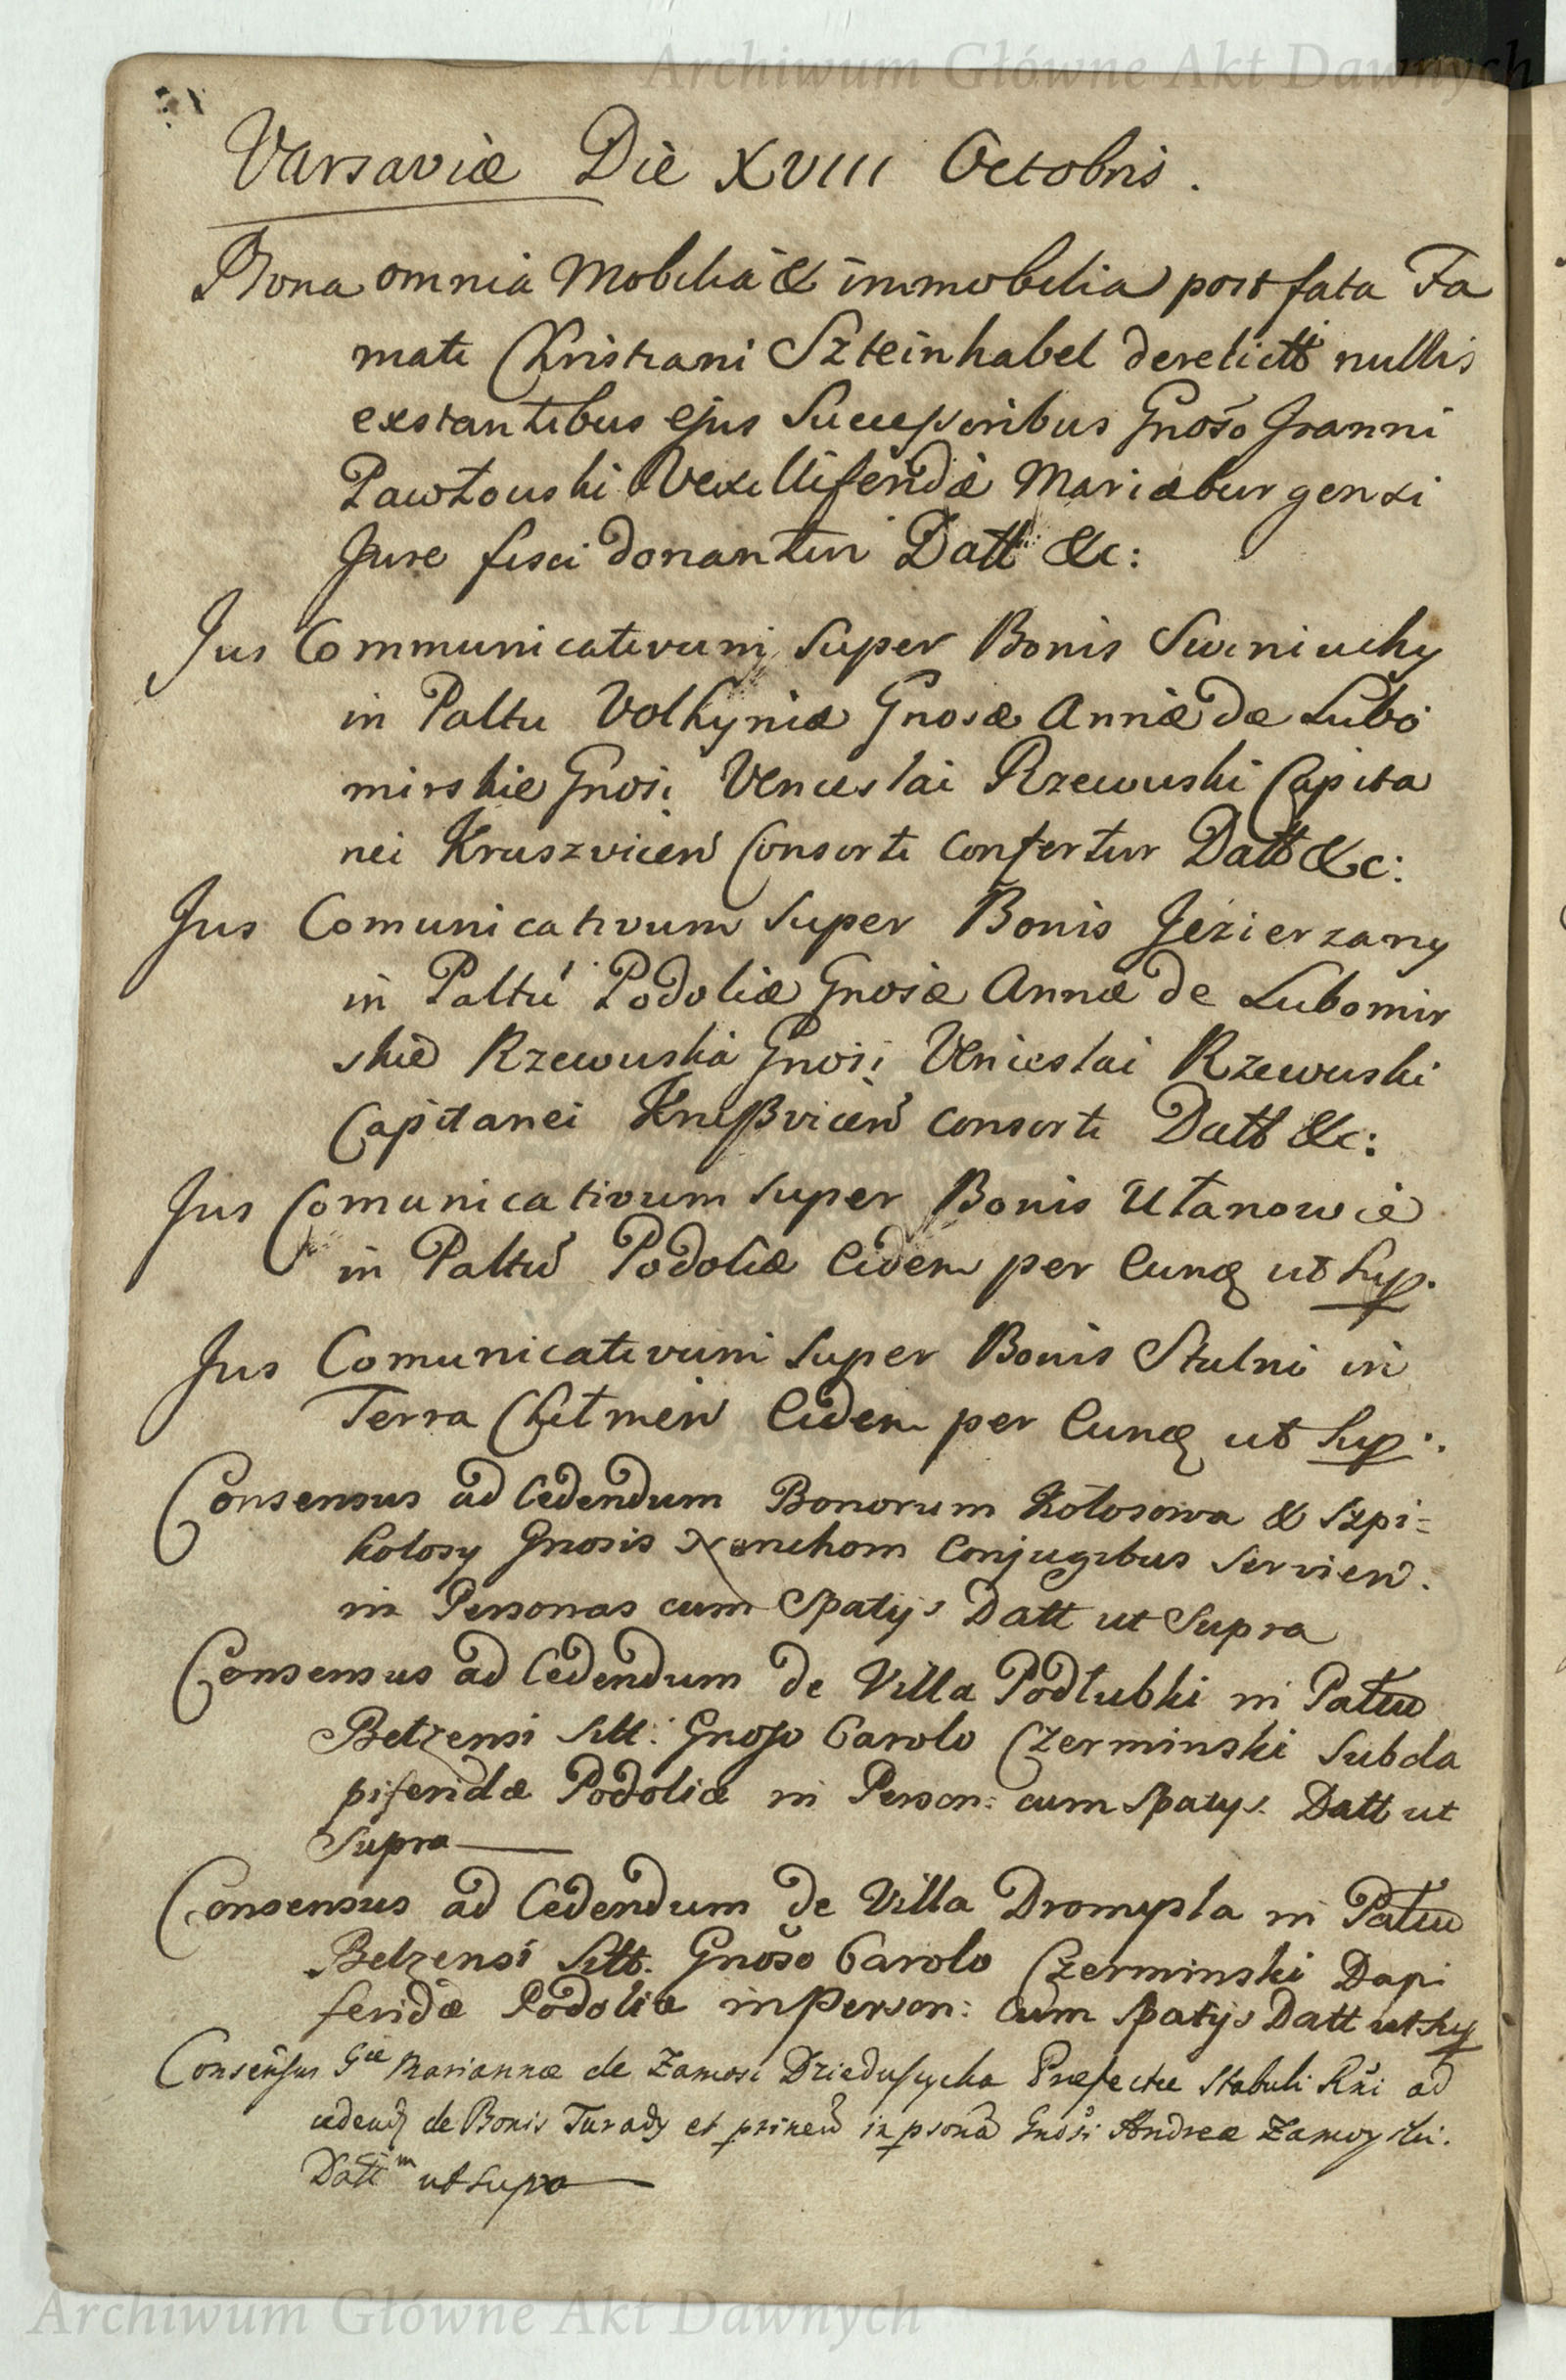 Archiwum Główne Akt Dawnych
Varsaviæ Die XVIII Octobris.
Bona omnia Mobilia & immobilia post fata Fa
mati Christiani Szteinhabel derelictt nullis
exstantibus ejus Successoribus Gnoso Joanni
Pawłouski Vexilliferidæ Mariæburgensi
Jure fisci donantur Datt &c:
Jus Communicativum super Bonis Swiniuchy
in Paltu Volhyniæ Gnosæ Annæ de Lubo
mirskie Gnosi Venceslai Rzewuski Capita
nei Kruszvicen Consorti confertur Datt &c:
Jus Comunicativum super Bonis Jezierzany
in Paltu Podoliæ Gnosæ Annæ de Lubomir
skie Rzewuska Gnosi Venceslai Rzewuski
Capitanei Krußvicen consorti Datt &c:
Jus Comunicativum super Bonis Ułanowie
in Paltu Podoliæ Eidem per Eunq ut Sup.
Jus Comunicativum super Bonis Stulni in
Terra Chełmen Eidem per Eunq ut Sup.
Consensus ad Cedendum Bonorum Kołosowa & Szpi=
kolosy Gnosis Conjugibus Servien.
in Personas cum Spatijs Datt ut Supra
Consensus ad Cedendum de Villa Podłubki in Pałtu
Bełzensi Sitt: Gnoso Carolo Czerminski Subda
piferidæ Podoliæ in Person: cum Spatijs. Datt ut
Supra
Consensus ad Cedendum de Villa Dromysla in Pałtu
Belzensi Sitt. Gnoso Carolo Czerminski Dapi
feridæ Podoliæ in Person: cum Spatijs Datt ut Sup
Consensus Gæ Mariannæ de Zamosc Dzieduszycka Præfectæ Stabuli Rni ad
cedend de Bonis Turady et ptinen in psona Gnosi Andreæ Zamoyski.
Datt m ut Supra
Archiwum Główne Akt Dawnych